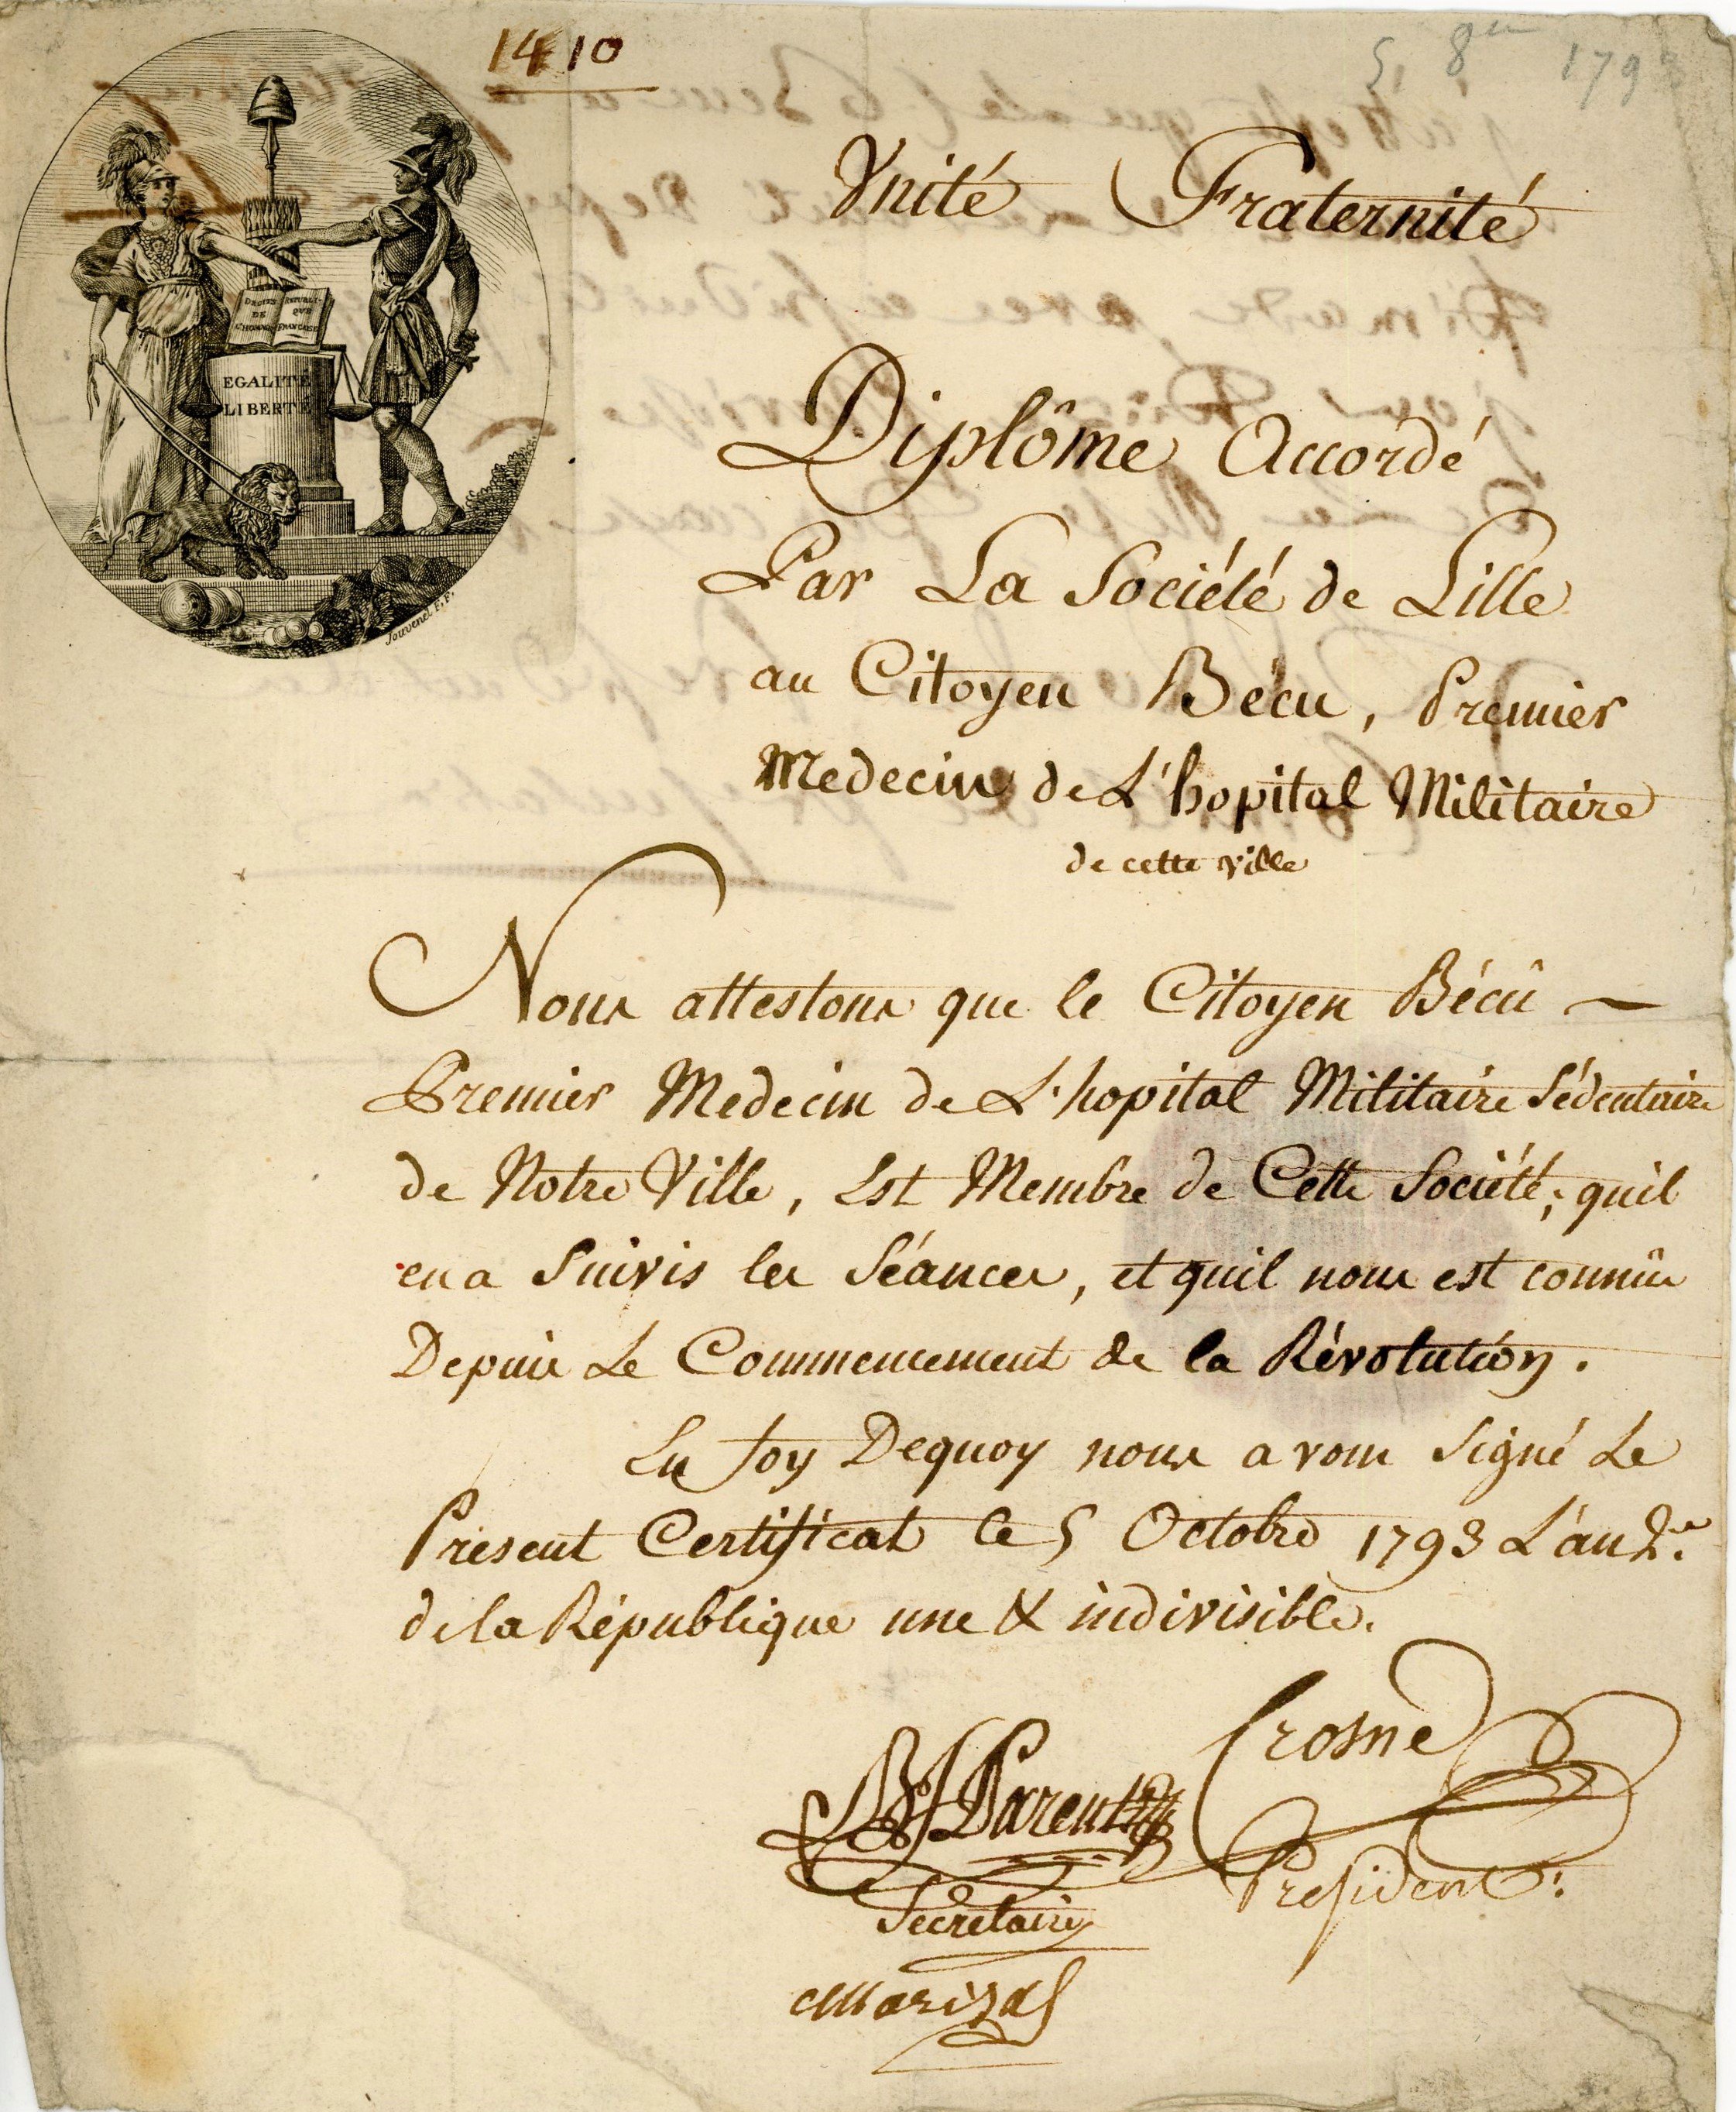 1410
5 8bre 1793
Unité Fraternité
DROITS DE L'HOMME
REPUBLIQUE FRANCAISE
EGALITÉ
LIBERTÉ
Jouvenel F. F.
Diplôme Accordé
Par La Société de Lille
au Citoyen Bécu, Premier
Medecin de L'hopital Militaire
de cette ville
Nous attestons que le Citoyen Bécû –
Premier Medecin de L'hopital Militaire Sédentaire
de Notre Ville, Est Membre de Cette Société; quil
en a Suivis les Séances, et quil nous est connû
Depuis Le Commencement de la Révolution.
En foy Dequoy nous avons Signé Le
Présent Certificat le 5 Octobre 1793 L'an 2.e
de la République une & indivisible.
Crosne
Président:
Parentin
Secretaire